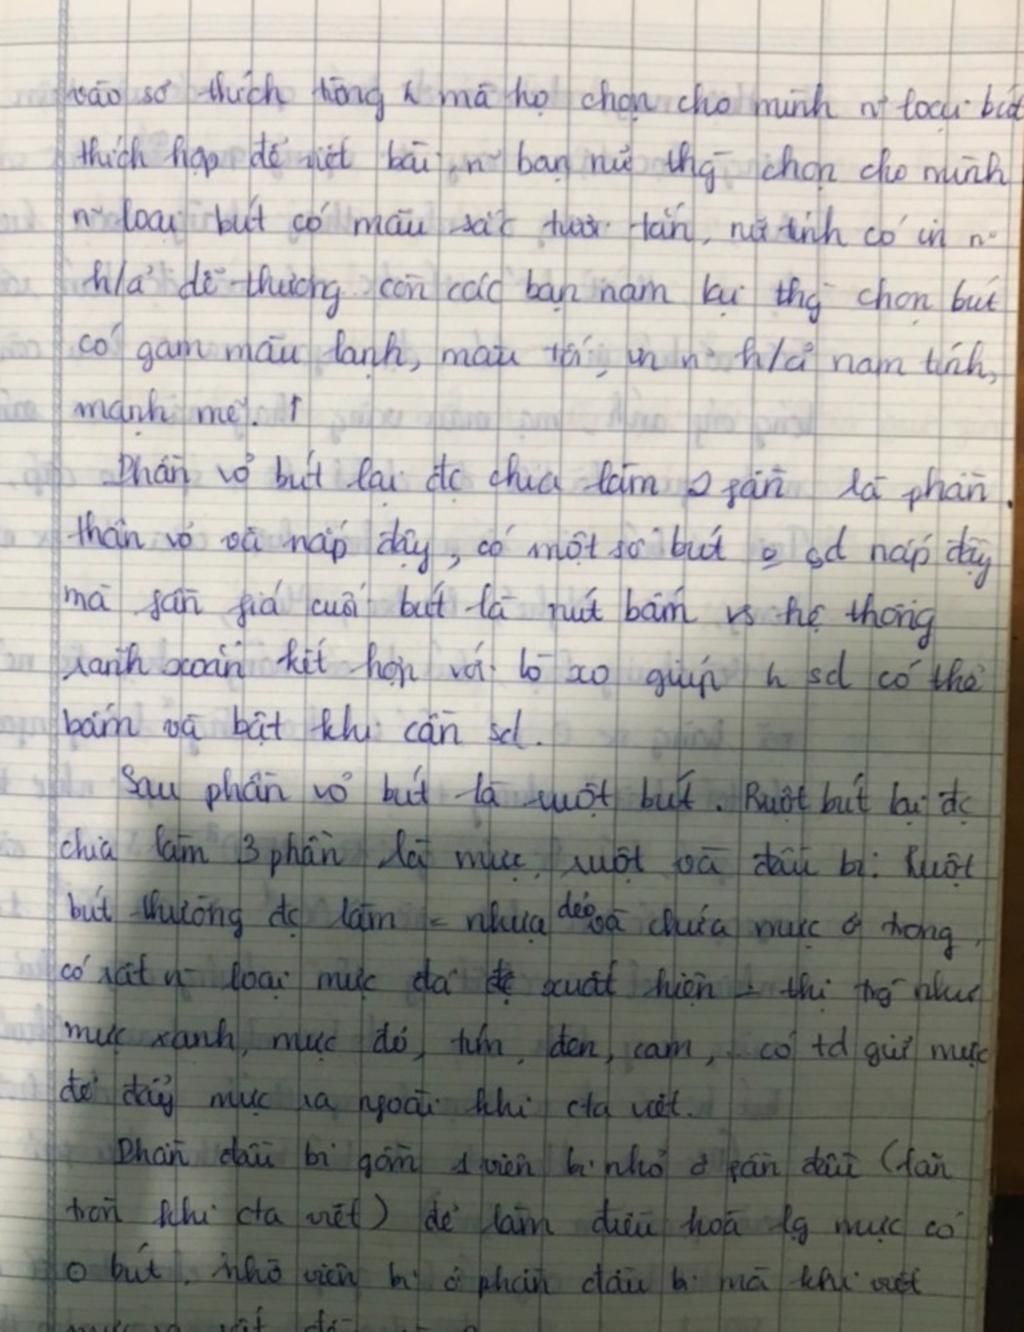 vào sơ thích từng h mà họ chọn cho mình n~ loại bút
thích hợp để viết bài, n~ bạn nữ thg~ chọn cho mình
n~ loại bút có màu sắc tươi tắn, nữ tính có in n~
h/ả dễ thương còn các bạn nam lại thg~ chọn bút
có gam màu lạnh, màu tối, in n~ h/ả nam tính,
mạnh mẽ.
Phần vỏ bút lại đc chia làm 2 phần là phần
thân vỏ và nắp đậy, có một số bút o sd nắp đậy
mà phần phía cuối bút là nút bấm vs hệ thống
rãnh xoắn kết hợp với lò xo giúp h sd có thể
bấm và bật khi cần sd.
Sau phần vỏ bút là ruột bút. Ruột bút lại đc
chia làm 3 phần là mực, ruột và đầu bi. Ruột
bút thường đc làm = nhựa dẻo và chứa mực ở trong,
có rất n~ loại mực đã xuất hiện thị trg~ như
mực xanh, mực đỏ, tím, đen, cam, có td giữ mực
để đẩy mực ra ngoài khi cta viết.
Phần đầu bi gồm 1 viên bi nhỏ ở phần đầu (lăn
tròn khi cta viết) để làm điều hoà lg mực có
o bút, nhờ viên bi ở phần đầu bi mà khi viết